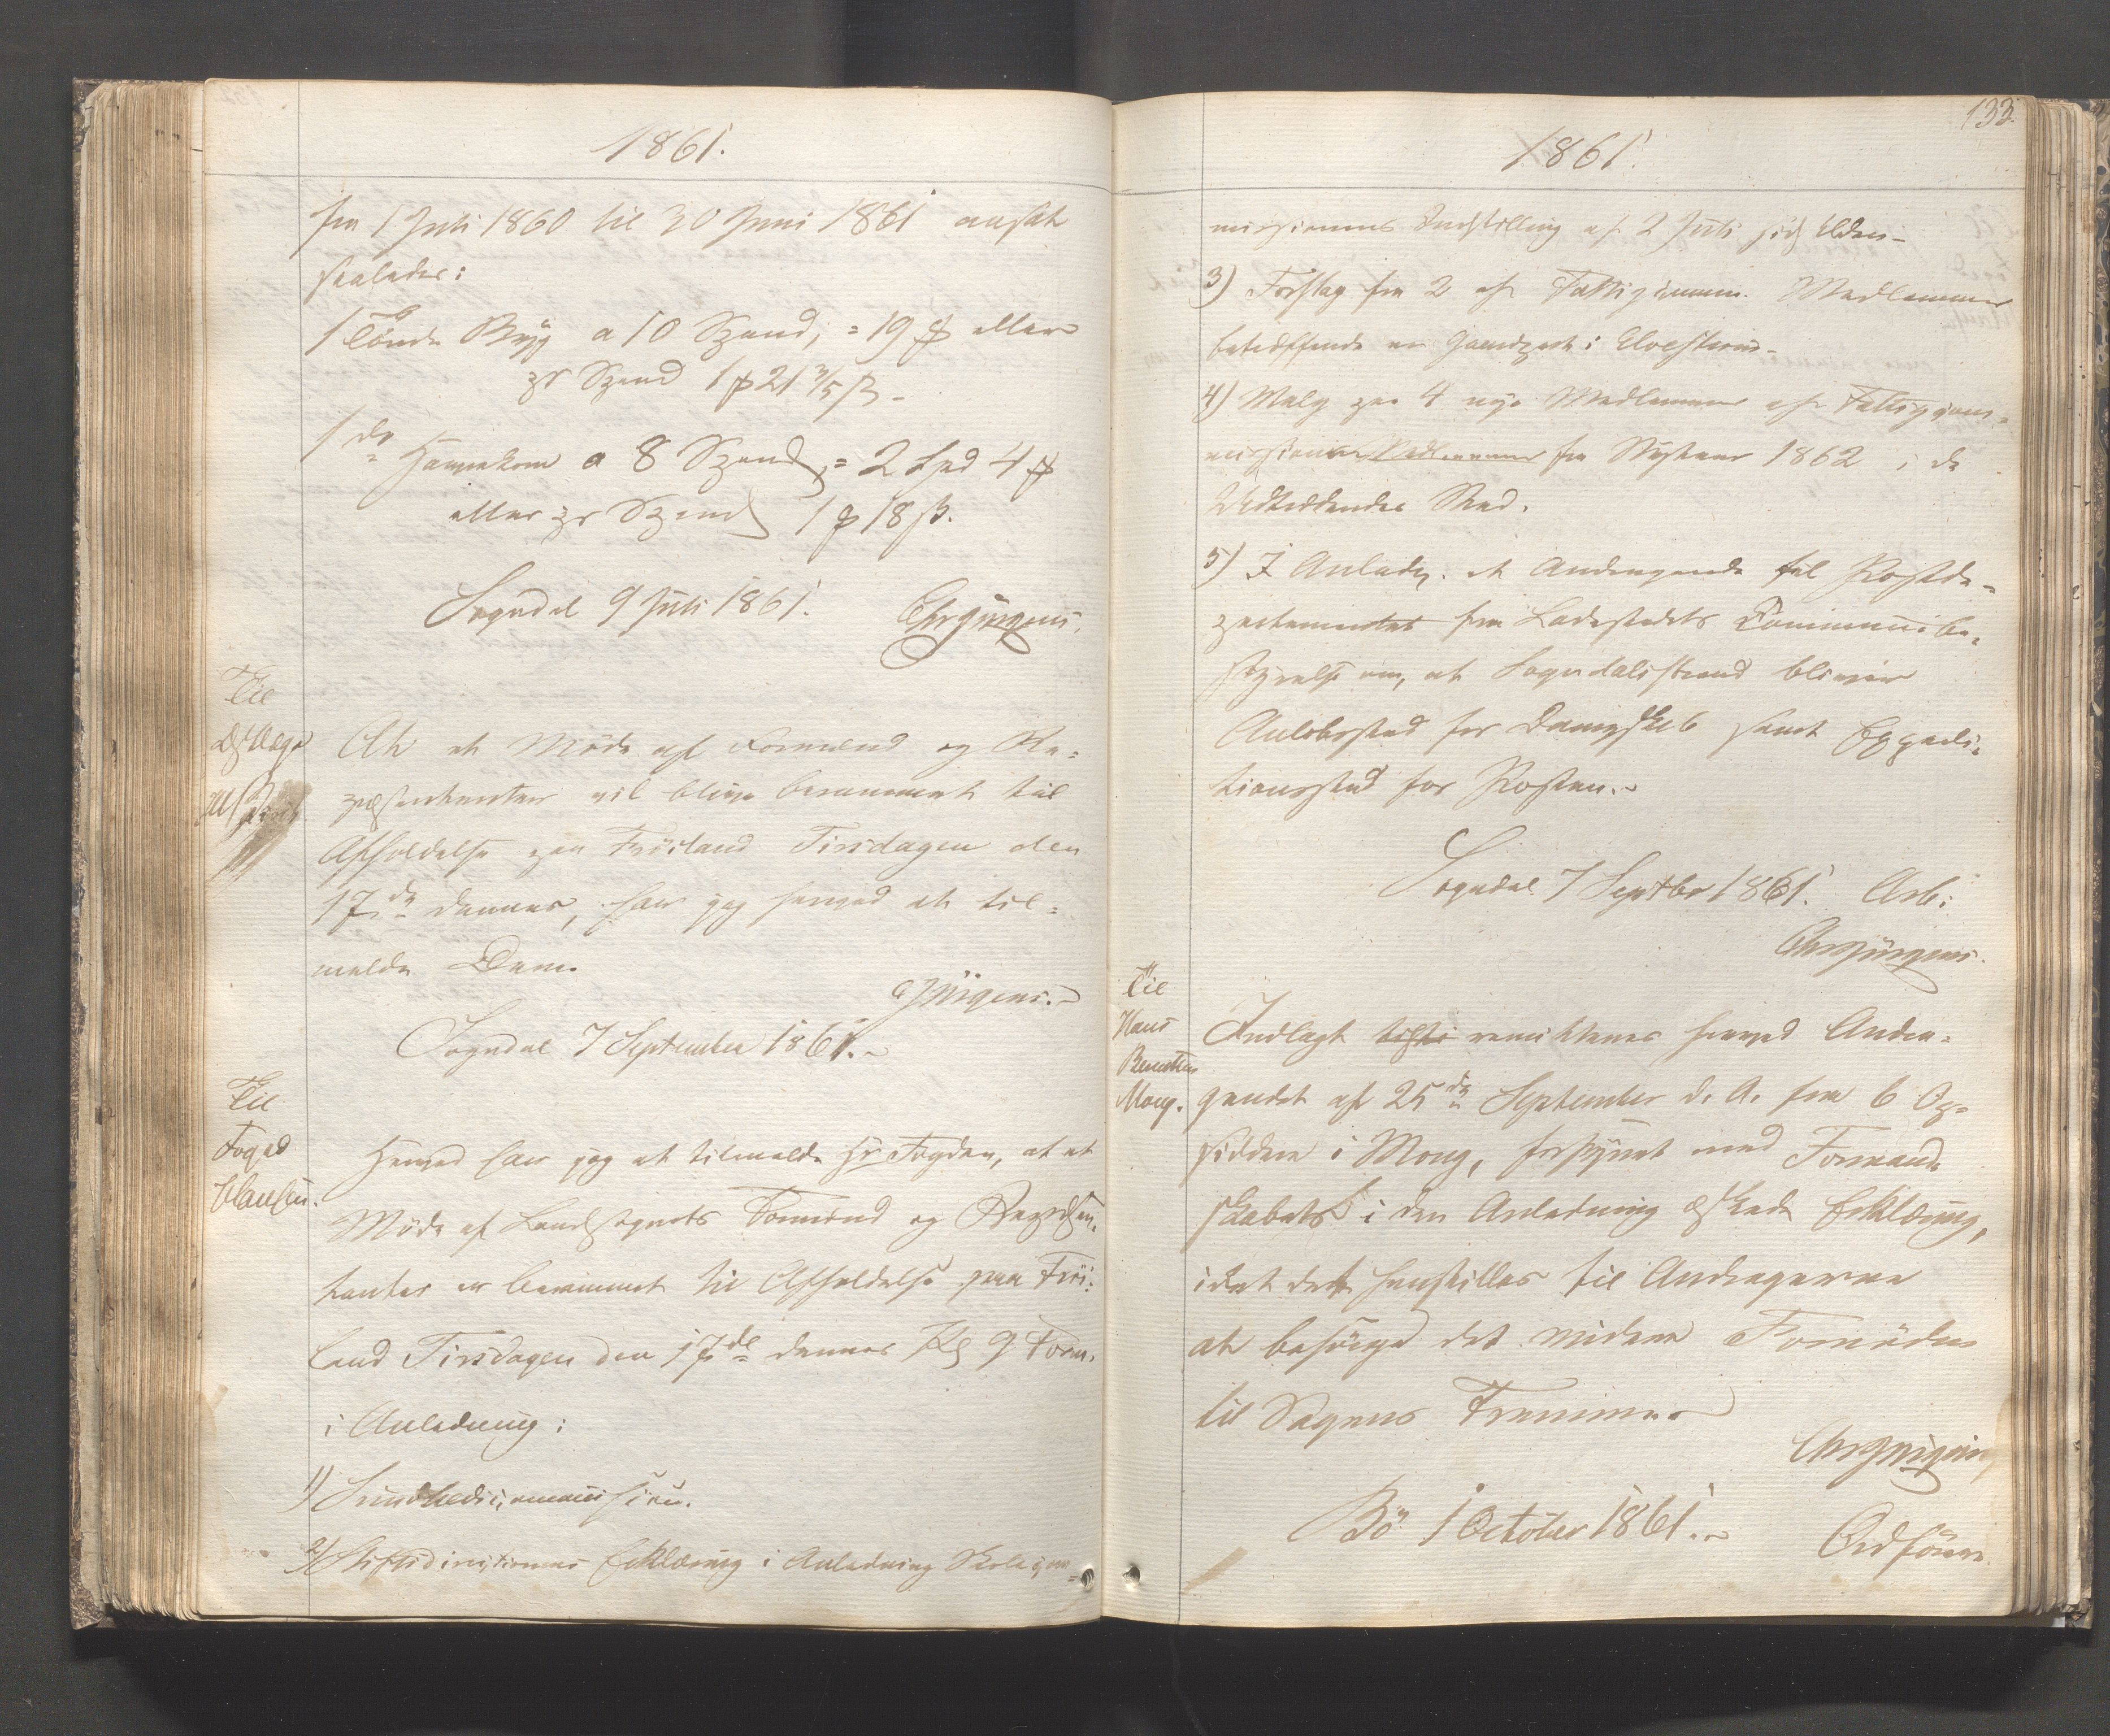 1861.
fra 1 Juli 1860 til 30 Juni 1861 ansat
saaledes:
1 Tønde Byg a 10 Spand, = 19 ₰ eller
pr Spand 1 ₰ 21 3/5 ß.
1 do Havrekorn a 8 Spand, = 2 Spd 4 ₰
eller pr Spand 1 ₰ 18 ß.
Sogndal 9 Juli 1861.
Chr Jürgens.
Til
At et Møde af Formænd og Re-
præsentanter vil blive berammet til
Afholdelse paa Frøiland Tirsdagen den
17de dennes, har jeg herved at til-
melde Dem.
C Jürgens.
Sogndal 7 September 1861.
Til
Foged
Clausen.
Herved har jeg at tilmelde Hr Fogden, at et
Møde af Landsognets Formænd og Repræsen-
tanter er berammet til Afholdelse paa Frøi-
land Tirsdagen den 17de dennes Kl 9 Form.
i Anledning:
1) Sundhedscommission.
2) Stiftsdirectionens Erklæring i Anledning Skolecom-
133.
1861.
missionens Indstilling af 2 Juli
3) Forslag fra 2 af Fattigcomm. Medlemmer
betræffende en
4) Valg paa 4 nye Medlemmer af Fattigcom-
missionen Medlemmer fra Nytaar 1862 i de
Udtrædendes Sted.
5) I Anledn. et Andragende til Postde-
partementet fra Ladestedets Communebe-
styrelse om, at Sogndalsstrand bliver
Anløbssted for Dampskib samt Expedi-
tionssted for Posten.
Sogndal 7 Septbr 1861. Arb:
Chr Jürgens.
Til
Hans
Berntsen
Mong.
Indlagt tilsti remitteres herved Andra-
gendet af 25de September d. A. fra 6 Op-
siddere i Mong, forsynet med Formand-
skabets i den Anledning æskede Erklæring,
idet det henstilles til Andragerne
at besørge det videre Fornødne
til Sagens Fremme.
Chr Jürgens
Bø 1 October 1861.
Ordfører.